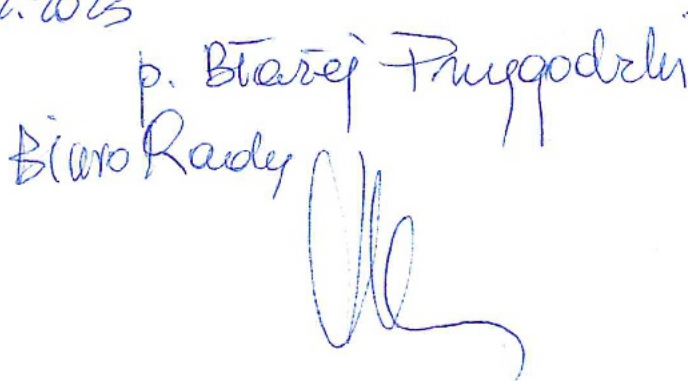 .2025
p. Błażej Przygodzki
Biuro Rady